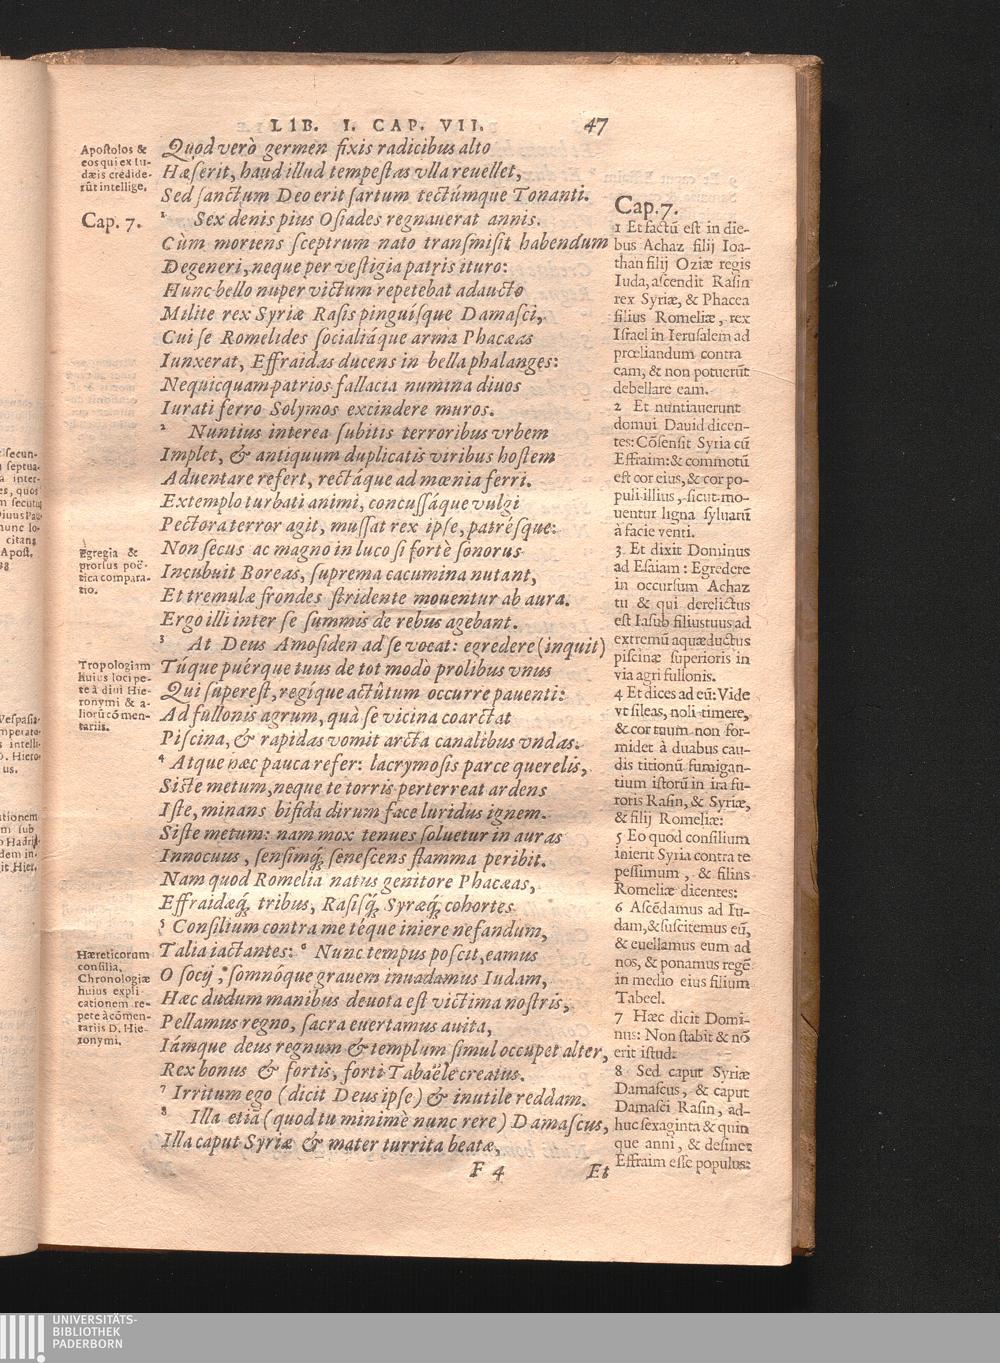 LIB. I. CAP. VII. 47
Apoſtolos &
eos qui ex Iu-
dæis credide-
rūt intellige,
Cap. 7.
Egregia &
prorſus poë-
tica compara-
tio.
Tropologiam
huius loci pe-
te à diui Hie-
ronymi & a-
liorū cōmen-
tariis.
Hæreticorum
conſilia.
Chronologiæ
huius expli-
cationem re-
pete à cōmen-
tariis D. Hie-
ronymi.
Quod verò germen fixis radicibus alto
Hæſerit, haud illud tempeſtas vlla reuellet,
Sed ſanctum Deo erit ſartum tectúmque Tonanti.
1 Sex denis pius Oſiades regnauerat annis.
Cùm mortens ſceptrum nato tranſmiſit habendum
Degeneri, neque per veſtigia patris ituro:
Hunc bello nuper victum repetebat adaucto
Milite rex Syriæ Raſis pinguiſque Damaſci,
Cui ſe Romelides ſocialiáque arma Phacæas
Iunxerat, Effraidas ducens in bella phalanges:
Nequicquam patrios fallacia numina diuos
Iurati ferro Solymos excindere muros.
2 Nuntius interea ſubitis terroribus vrbem
Implet, & antiquum duplicatis viribus hoſtem
Aduentare refert, rectáque ad mœnia ferri.
Extemplo turbati animi, concuſſáque vulgi
Pectora terror agit, muſſat rex ipſe, patréſque:
Non ſecus ac magno in luco ſi fortè ſonorus
Incubuit Boreas, ſuprema cacumina nutant,
Et tremulæ frondes ſtridente mouentur ab aura.
Ergo illi inter ſe ſummis de rebus agebant.
3 At Deus Amoſiden ad ſe vocat: egredere (inquit)
Túque puérque tuus de tot modò prolibus vnus
Qui ſupereſt, regíque actûtum occurre pauenti:
Ad fullonis agrum, quà ſe vicina coarctat
Piſcina, & rapidas vomit arcta canalibus vndas.
4 Atque hæc pauca refer: lacrymoſis parce querelis,
Siſte metum, neque te torris perterreat ardens
Iſte, minans bifida dirum face luridus ignem.
Siſte metum: nam mox tenues ſoluetur in auras
Innocuus, ſenſimq́; ſeneſcens flamma peribit.
Nam quod Romelia natus genitore Phacæas,
Effraidæq́; tribus, Raſiſq́; Syræq́; cohortes
5 Conſilium contra me téque iniere nefandum,
Talia iactantes: 6 Nunc tempus poſcit, eamus
O ſocij, ſomnóque grauem inuadamus Iudam,
Hæc dudum manibus deuota eſt victima noſtris,
Pellamus regno, ſacra euertamus auita,
Iámque deus regnum & templum ſimul occupet alter,
Rex bonus & fortis, forti Tabaële creatus.
7 Irritum ego (dicit Deus ipſe) & inutile reddam.
8 Illa etiā (quod tu minimè nunc rere) Damaſcus,
Illa caput Syriæ & mater turrita beatæ,
F 4 Et
Cap. 7.
1 Et factū eſt in die-
bus Achaz filij Ioa-
than filij Oziæ regis
Iuda, aſcendit Raſin
rex Syriæ, & Phacea
filius Romeliæ, rex
Iſrael in Ieruſalem ad
prœliandum contra
eam, & non potuerūt
debellare eam.
2 Et nuntiauerunt
domui Dauid dicen-
tes: Cōſenſit Syria cū
Effraim: & commotū
eſt cor eius, & cor po-
puli illius, ſicut mo-
uentur ligna ſyluarū
à facie venti.
3 Et dixit Dominus
ad Eſaiam: Egredere
in occurſum Achaz
tu & qui derelictus
eſt Iaſub filius tuus ad
extremū aquæductus
piſcinæ ſuperioris in
via agri fullonis.
4 Et dices ad eū: Vide
vt ſileas, noli timere,
& cor tuum non for-
midet à duabus cau-
dis titionū fumigan-
tium iſtorū in ira fu-
roris Raſin, & Syriæ,
& filij Romeliæ:
5 Eo quod conſilium
inierit Syria contra te
peſſimum, & filius
Romeliæ dicentes:
6 Aſcēdamus ad Iu-
dam, & ſuſcitemus eū,
& euellamus eum ad
nos, & ponamus regē
in medio eius filium
Tabeel.
7 Hæc dicit Domi-
nus: Non ſtabit & nō
erit iſtud.
8 Sed caput Syriæ
Damaſcus, & caput
Damaſci Raſin, ad-
huc ſexaginta & quin
que anni, & deſinet
Effraim eſſe populus:
UNIVERSITÄTS-
BIBLIOTHEK
PADERBORN